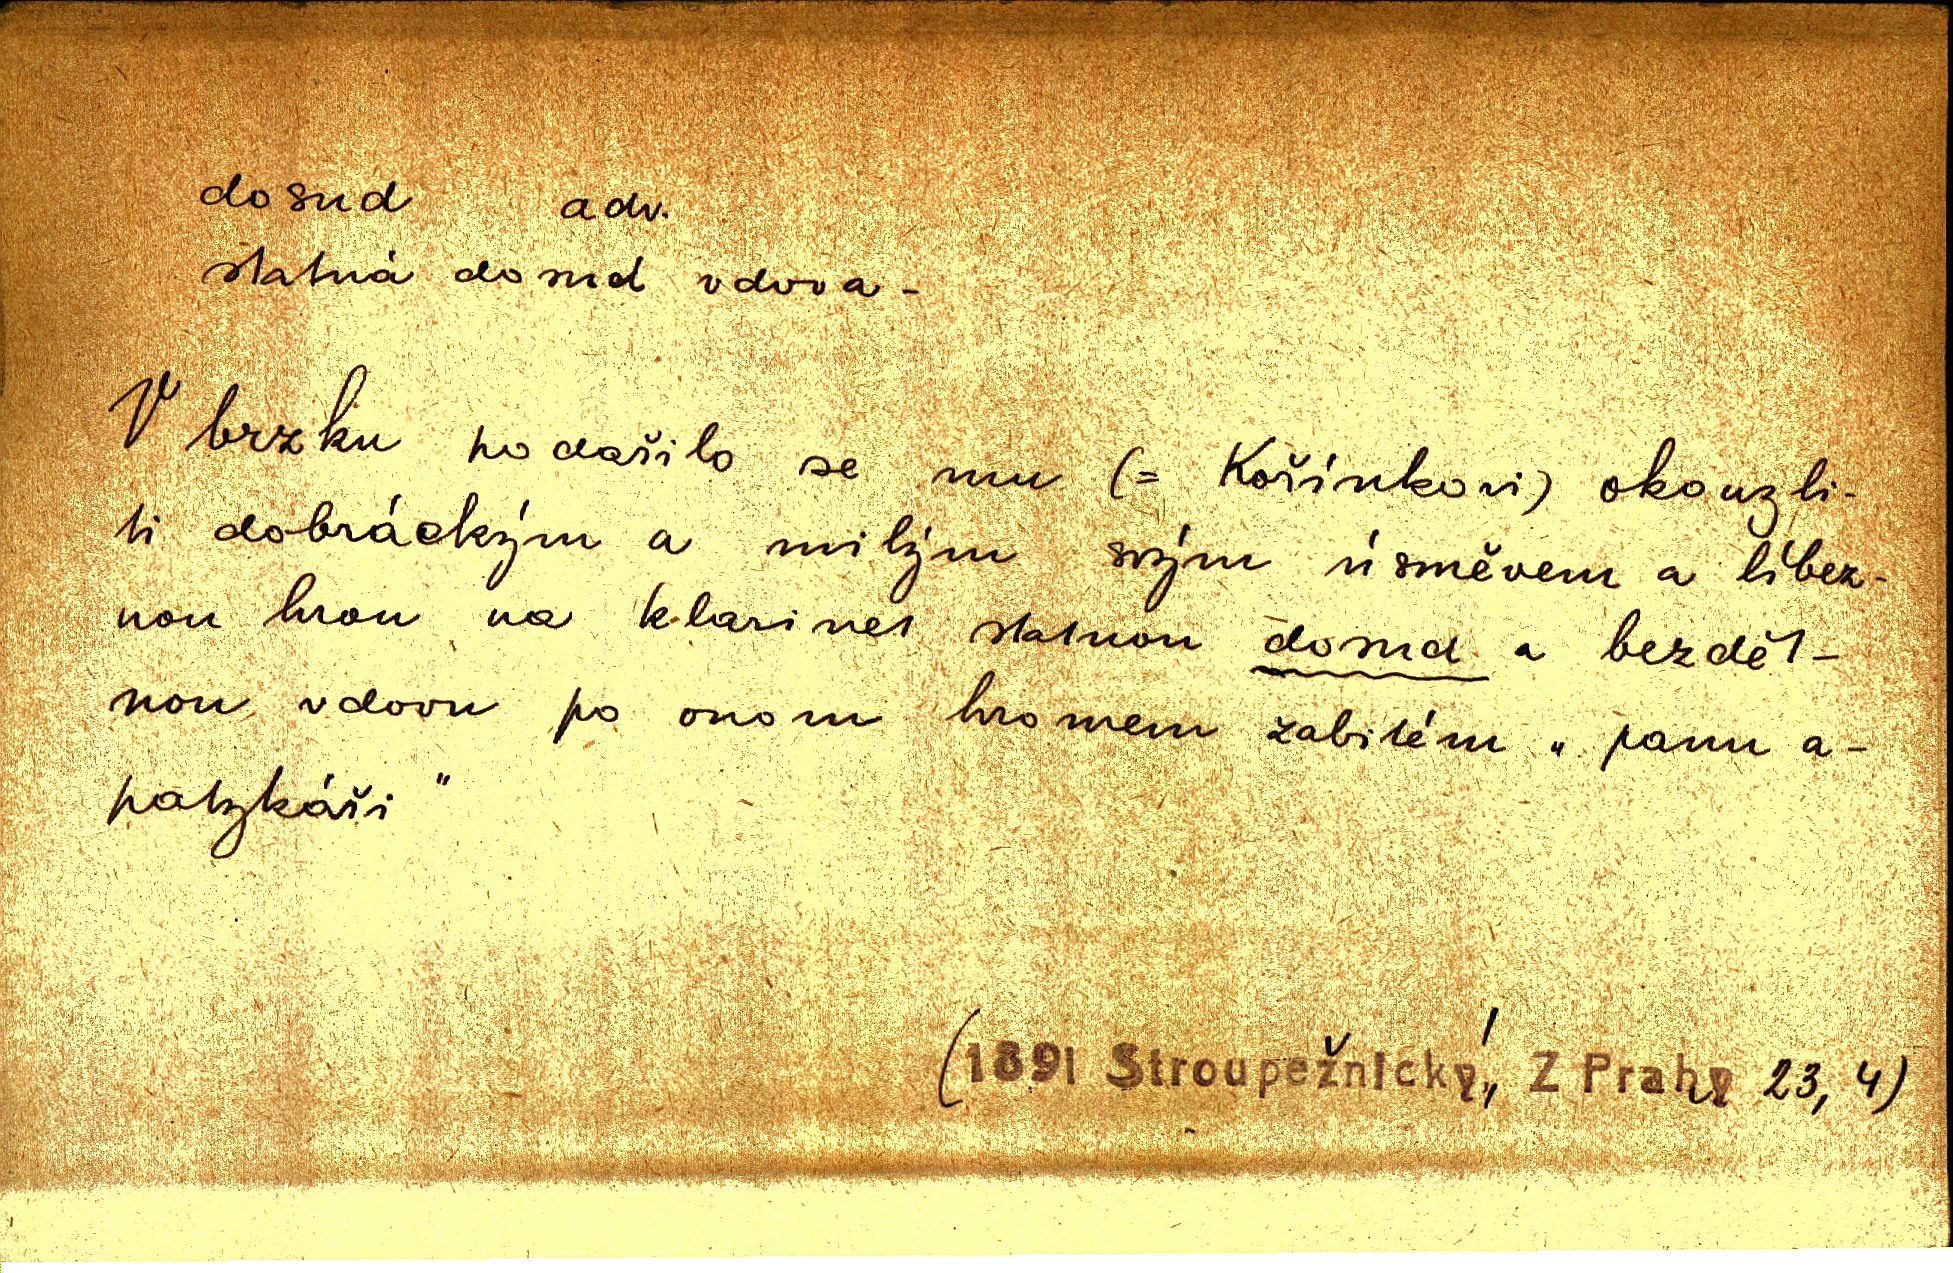 dosud adv.
statná dosud vdova -
V brzku podařilo se mu (= Kořínkovi) okouzli-
ti dobráckým a milým svým úsměvem a líbez-
nou hrou na klarinet statnou dosud a bezdět-
nou vdovu po onom hromem zabitém „panu a-
patykáři"
(1891 Stroupežnický, Z Prahy 23, 4)